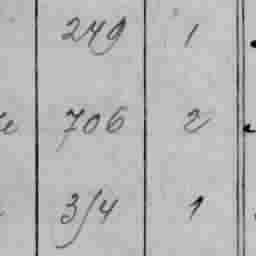 249 1
706 2
314 1